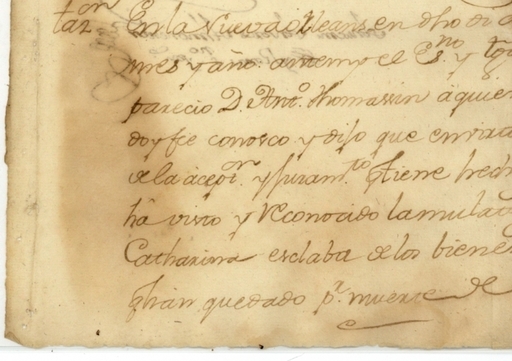 on
taz.
En la Nueva Orleans en dho dia
mes y año antemy el Es.no y tgos
parecio D. Ant.o Thomassin à quien
doy fee conosco y dijo que en virt
de la acep.n y juram.to q tiene hech
hà visto y Reconocido la mulat
Catharina esclaba de los biene
q hàn quedado p.r muerte de